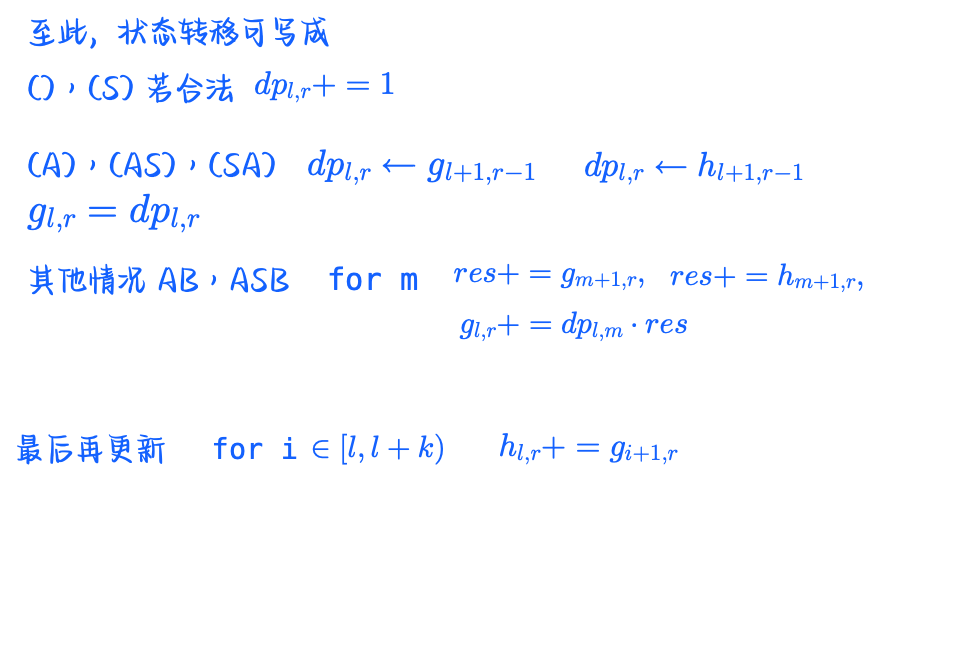 至此，状态转移可写成
()，(S) 若合法 dp_{l,r} += 1
(A)，(AS)，(SA) dp_{l,r} ← g_{l+1,r−1} dp_{l,r} ← h_{l+1,r−1}
g_{l,r} = dp_{l,r}
其他情况 AB，ASB for m res+ = g_{m+1,r}, res+ = h_{m+1,r},
g_{l,r}+ = dp_{l,m} · res
最后再更新 for i ∈ [l, l + k) h_{l,r}+ = g_{i+1,r}